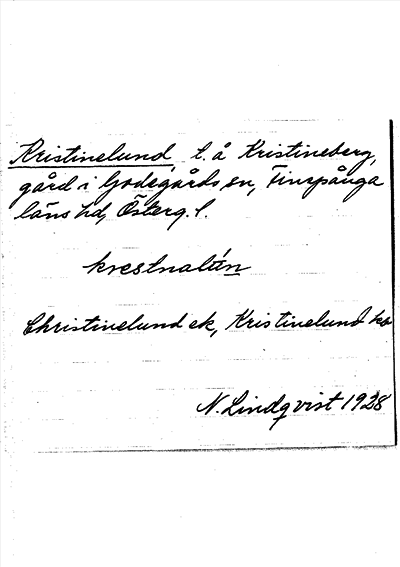 Kristinelund, t. å Kristineberg,
gård i Godegårds sn, Finspånga
läns hd, Österg. l.
krestnalún
Christinelund ek, Kristinelund ka
N. Lindqvist 1928